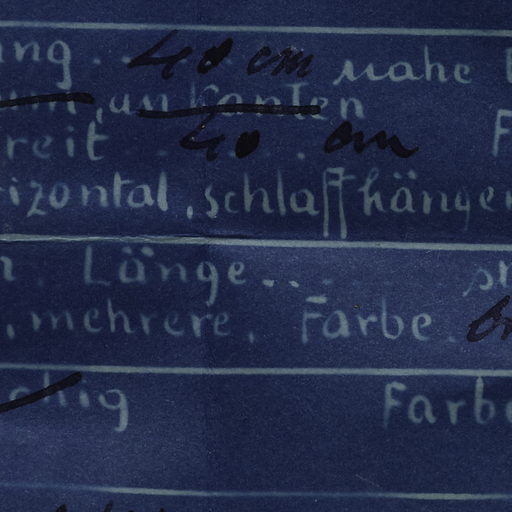 ng.. 40 cm nahe
an Kanten
reit 40 cm F
rizontal, schlaff hängen
Länge...
, mehrere, Farbe.
chig Farbe